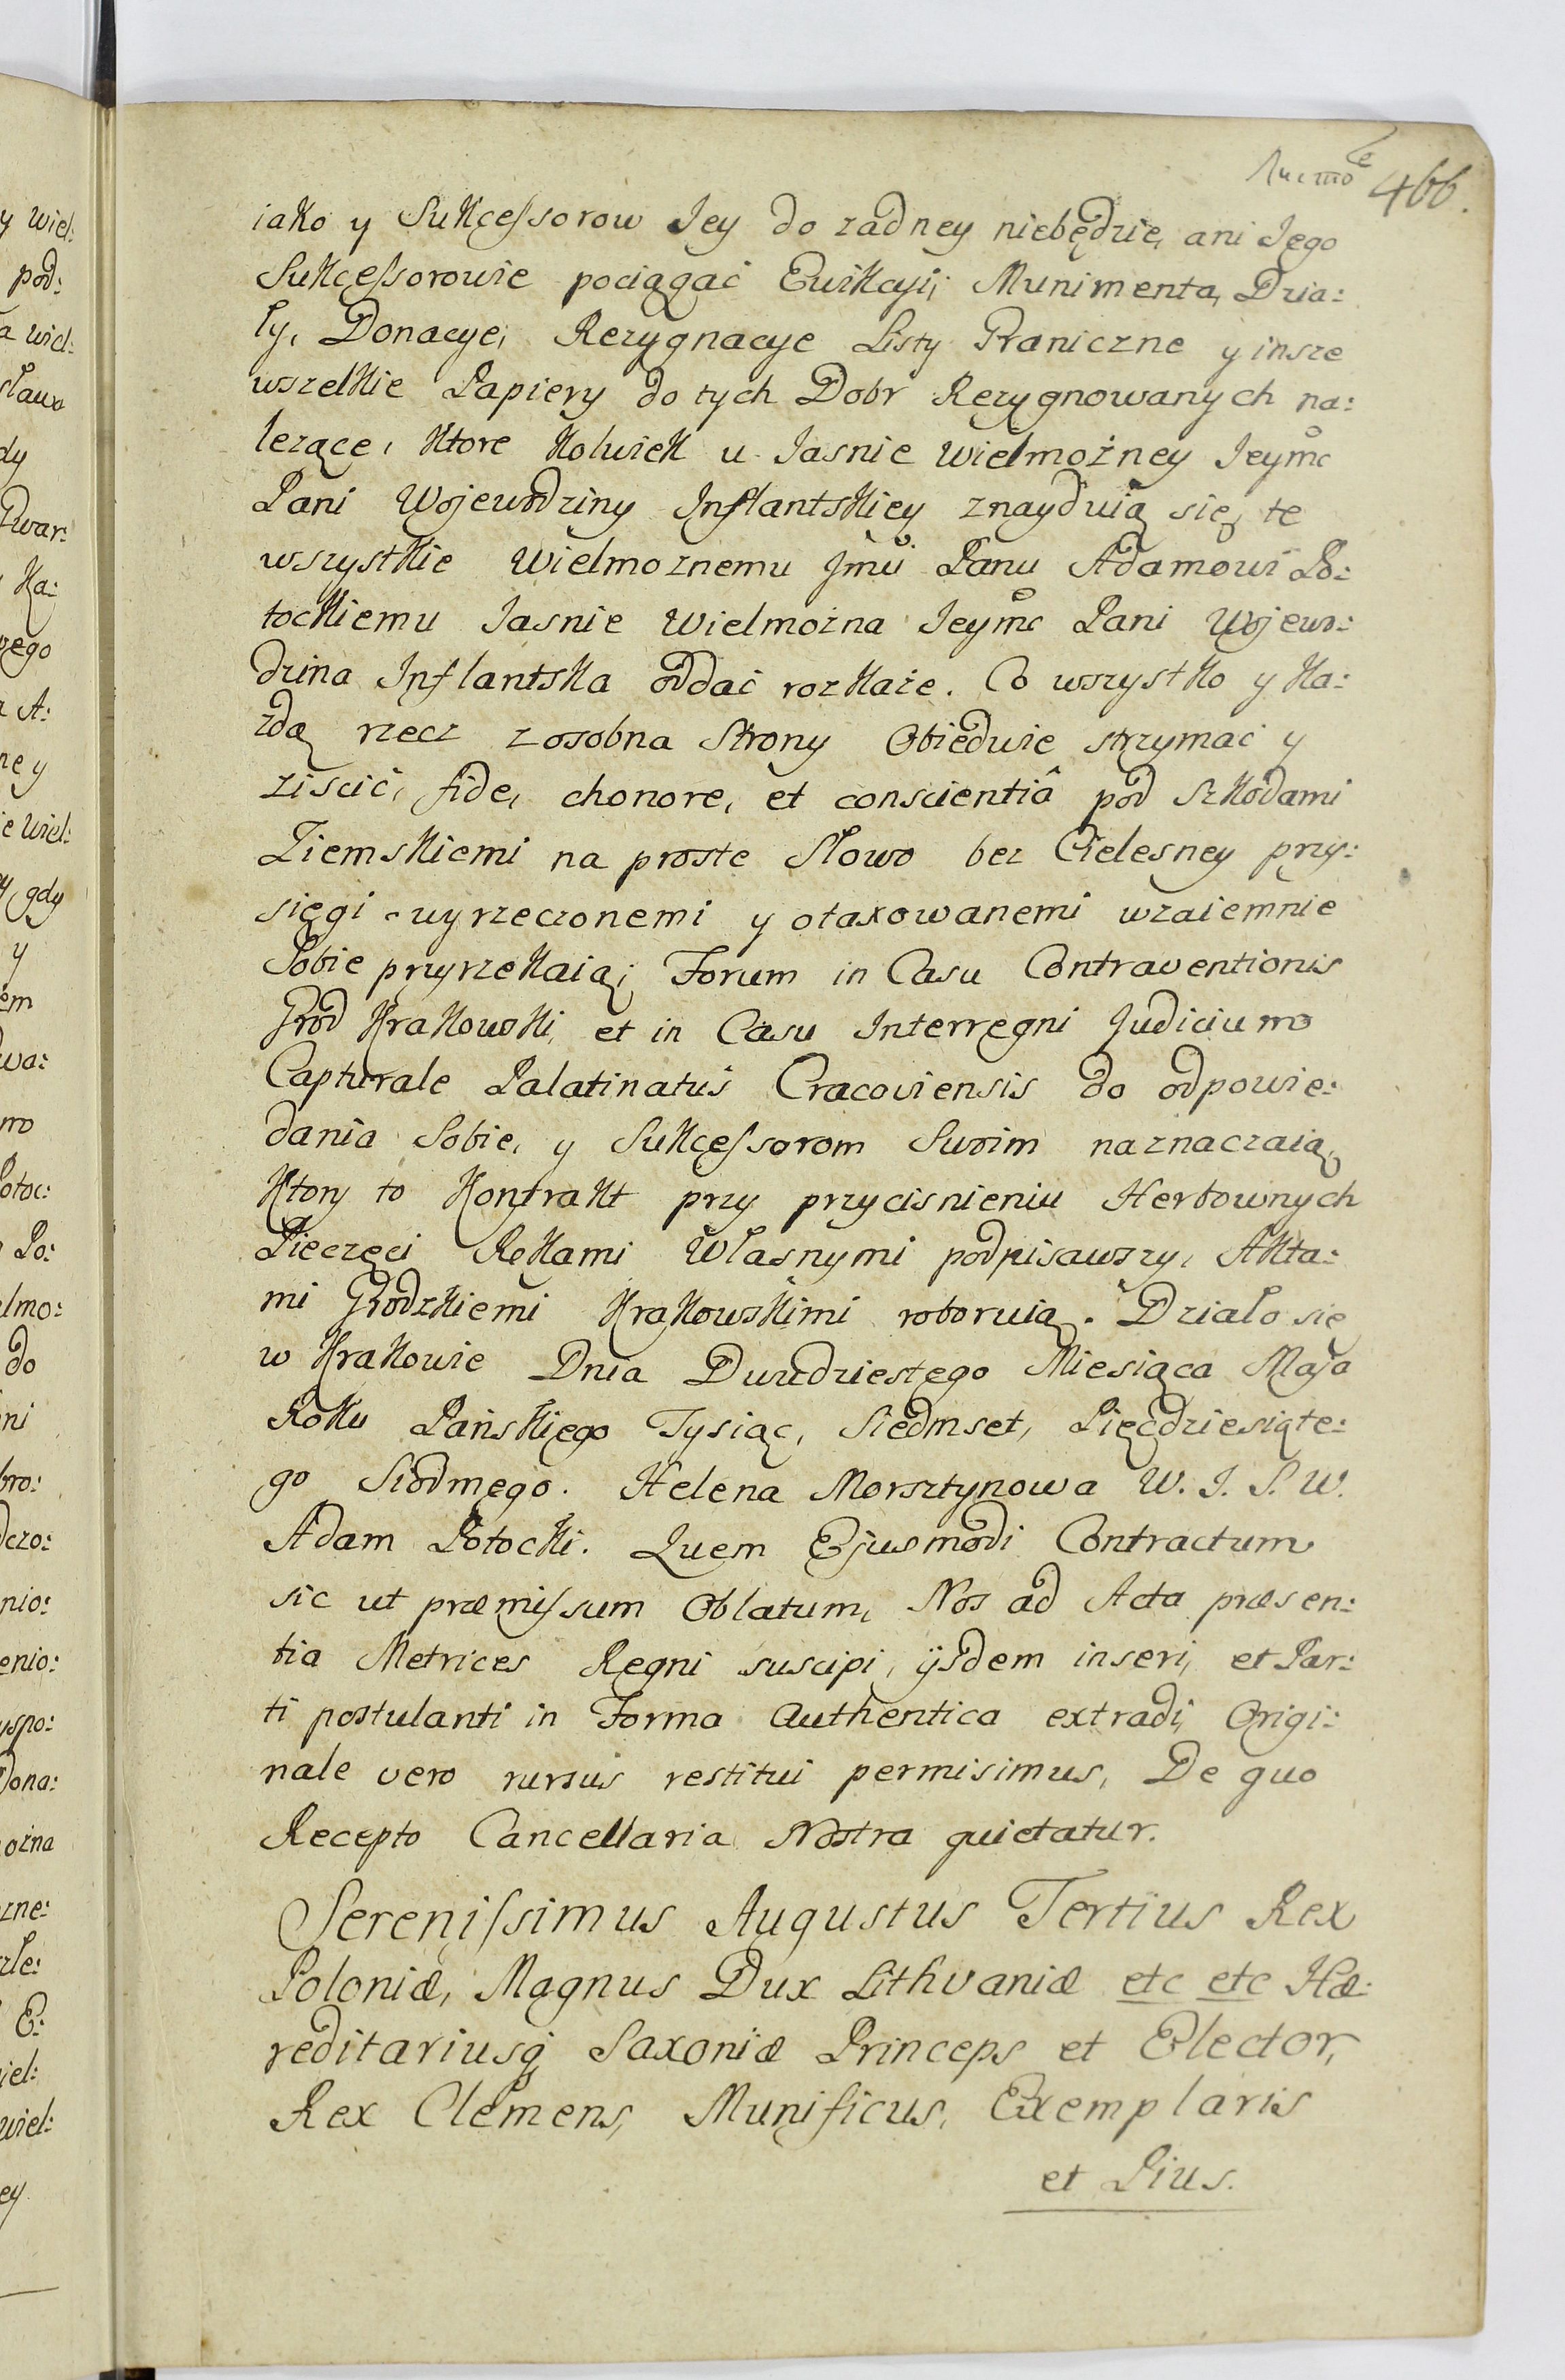 466.
iako y Sukcessorow Jey do zadney niebędzie, ani Jego
Sukcessorowie pociągać Ewikcyi; Munimenta, Dzia:
ły, Donacye, Rezygnacye Listy Graniczne y insze
wszelkie Papiery do tych Dobr Rezygnowanych na:
lezące, ktore kolwiek u Jasnie Wielmożney Jeymc
Pani Wojewodziny Inflantskiey znayduią się, te
wszystkie Wielmoznemu Jmu Panu Adamowi Po:
tockiemu Jasnie Wielmożna Jeymc Pani Wojewo:
dzina Inflantska oddać rozkaże. Co wszystko y ka:
zdą rzecz zosobna Strony Obiedwie strzymać y
ziscić, fide, chonore, et conscientiâ pod Szkodami
Ziemskiemi na proste Słowo bez Cielesney przy:
sięgi wyrzeczonemi y otaxowanemi wzaiemnie
Sobie przyrzekaią; Forum in Casu Contraventionis
Grod Krakowski, et in Casu Interregni Judicium
Capturale Palatinatus Cracoviensis do odpowie:
dania Sobie, y Sukcessorom Swoim naznaczaią,
Ktory to Kontrakt przy przycisnieniu Herbownych
Pieczęci Rękami Własnymi podpisawszy, Akta:
mi Grodzkiemi Krakowskimi roboruią. Działo się
w Krakowie Dnia Dwudziestego Miesiąca Maja
Roku Pańskiego Tysiąc, Siedmset, Pięcdziesiąte:
go Siodmego. Helena Morsztynowa W. I. S. W.
Adam Potocki. Quem Ejusmodi Contractum
sic ut præmissum Oblatum, Nos ad Acta præsen:
tia Metrices Regni suscipi, ijsdem inseri, et Par:
ti postulanti in Forma Authentica extradi, Origi:
nale vero rursus restitui permisimus, De quo
Recepto Cancellaria Nostra quietatur.
Serenissimus Augustus Tertius Rex
Poloniæ, Magnus Dux Lithvaniæ etc etc Hæ:
reditariusq Saxoniæ Princeps et Elector,
Rex Clemens, Munificus, Exemplaris
et Pius.